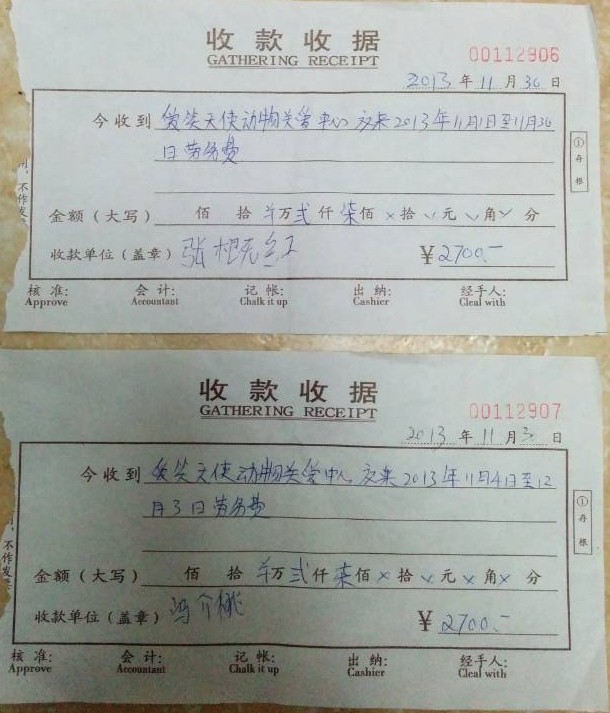 收款收据
GATHERING RECEIPT
00112906
2013年11月30日
今收到 爱笑天使动物关爱中心 交来2013年11月1日至11月30
日劳务费
①存根
不作发
金额（大写） 佰 拾 万贰仟柒佰×拾 元 角 分
收款单位（盖章） ¥2700.-
核准: 会计: 记帐: 出纳: 经手人:
Approve Accountant Chalk it up Cashier Cleal with
收款收据
GATHERING RECEIPT
00112907
2013年11月30日
今收到 爱笑天使动物关爱中心 交来2013年11月4日至12
月3日劳务费
①存根
不作发
金额（大写） 佰 拾 万贰仟柒佰×拾 元×角× 分
收款单位（盖章） 冯介桃 ¥2700.-
核准: 会计: 记帐: 出纳: 经手人:
Approve Accountant Chalk it up Cashier Cleal with